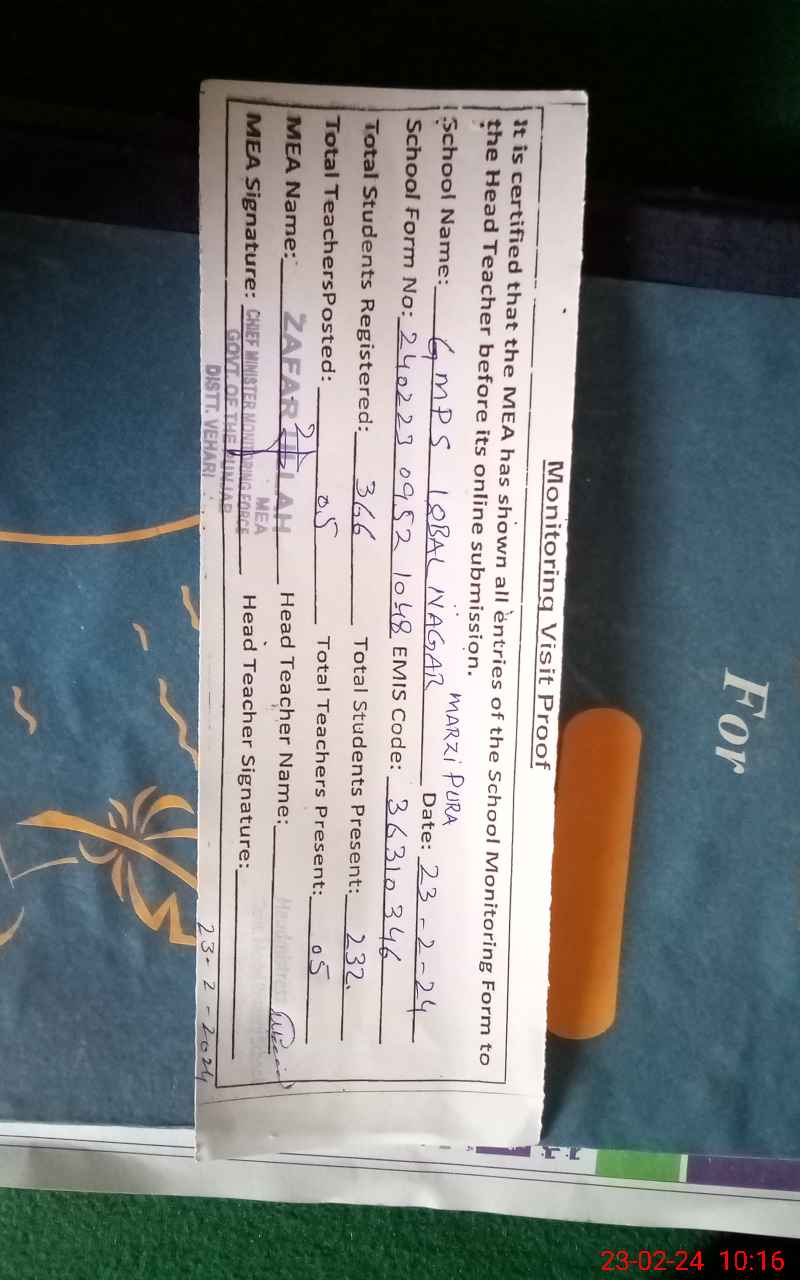 Monitoring Visit Proof
It is certified that the MEA has shown all entries of the School Monitoring Form to
the Head Teacher before its online submission.
MARZI PURA
School Name: GMPS IQBAL NAGAR Date: 23-2-24
School Form No: 240223 0952 1048 EMIS Code: 36310346
Total Students Registered: 366 Total Students Present: 232
Total TeachersPosted: 05 Total Teachers Present: 05
MEA Name: ZAFAR ULLAH Head Teacher Name: Headmistress
MEA
MEA Signature: CHIEF MINISTER MONITORING FORCE Head Teacher Signature:
GOVT. OF THE PUNJAB
DISTT. VEHARI
23-2-2024
For
23-02-24 10:16